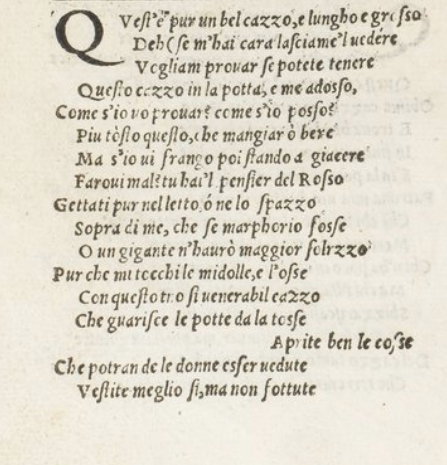 QVest'è pur un bel cazzo, e lungho e grosso
Deh (se m'hai cara lasciame'l uedére
Vogliam prouar se potete tenere
Questo cazzo in la potta, e me adosso,
Come s'io vo prouar? come s'io posso?
Piu tòsto questo, che mangiar ò bere
Ma s'io ui frango poi stando a giacere
Faroui mal? tu hai'l pensier del Rosso
Gettati pur nel letto, ó ne lo spazzo
Sopra di me, che se marphorio fosse
O un gigante n'haurò maggior solrzzo
Pur che mi tocchi le midolle, e l'osse
Con questo tuo si uenerabil cazzo
Che guarisce le potte da la tosse
Aprite ben le cosse
Che potran de le donne esser uedute
Vestite meglio si, ma non fottute